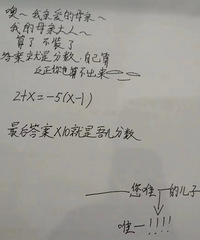 噢~我亲爱的母亲~
我的母亲大人~
算了 不装了
答案就是分数.自己算
反正你也算不出来
2+x=-5(x-1)
最后答案X10就是吾儿分数
——您唯一的儿子
唯一!!!!